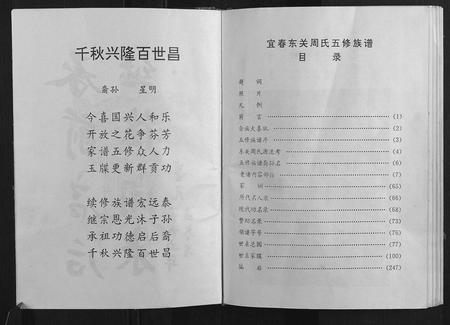 千秋兴隆百世昌
裔孙 星明
今喜国兴人和乐
开放之花争芬芳
家谱五修众人力
玉牒更新群贡功
续修族谱宏远泰
继宗恩光沐子孙
承祖功德启后裔
千秋兴隆百世昌
宜春东关周氏五修族谱
目录
题词
照片
凡例
前言 (1)
合派大喜讯 (2)
五修族谱序 (3)
东关周氏源流考 (4)
五修族谱裔孙名 (6)
老谱内容部份 (7)
家训 (65)
历代名人录 (66)
现代功名录 (68)
赞助名录 (73)
颁谱字号 (76)
世系总图 (77)
世系家牒 (100)
编后 (247)